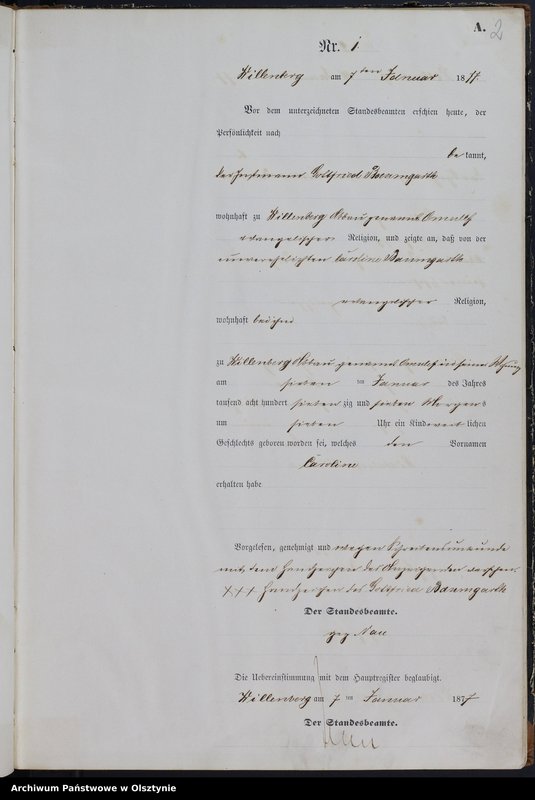 A. 2
Nr. 1
Willenberg am 7ten Januar 1877.
Vor dem unterzeichneten Standesbeamten erschien heute, der
Persönlichkeit nach
bekannt,
der Instmann Gottfried Baumgarth
wohnhaft zu Willenberg Abbau genannt
evangelischer Religion, und zeigte an, daß von der
unverehelichten Caroline Baumgarth
evangelischer Religion,
wohnhaft bei ihm
zu Willenberg Abbau genannt in seiner Wohnung
am sieben ten Januar des Jahres
tausend acht hundert siebenzig und sieben Morgens
um sieben Uhr ein Kind weiblichen
Geschlechts geboren worden sei, welches den Vornamen
Caroline
erhalten habe
Vorgelesen, genehmigt und wegen Schreibensunkunde
mit dem Handzeichen des Anzeigenden versehen.
+++ Handzeichen des Gottfried Baumgarth
Der Standesbeamte.
gez Nau
Die Uebereinstimmung mit dem Hauptregister beglaubigt.
Willenberg am 7 ten Januar 1877
Der Standesbeamte.
Nau
Archiwum Państwowe w Olsztynie